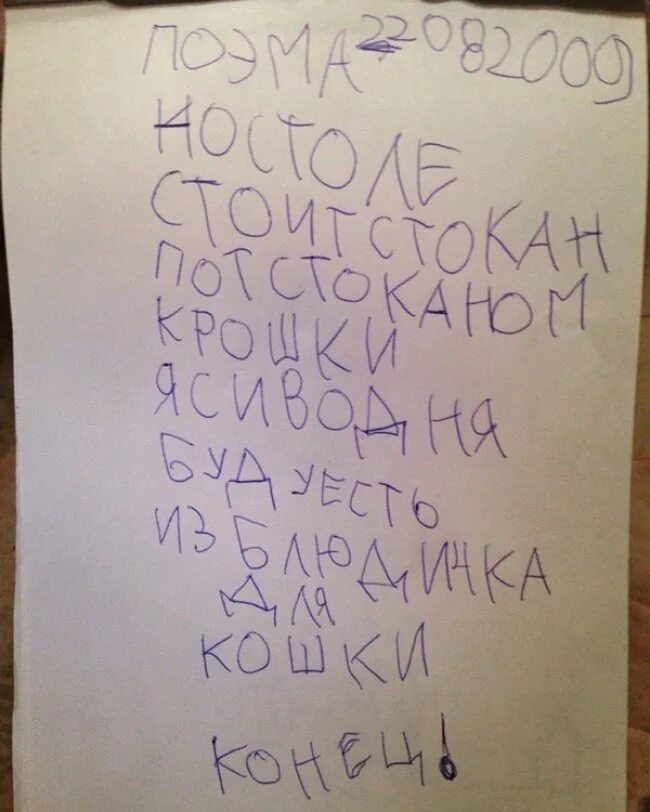 ПОЭМА 22082009
НОСТОЛЕ
СТОИТ СТОКАН
ПОТ СТОКАНОМ
КРОШКИ
Я СИВОДНЯ
БУДУ ЕСТЬ
ИЗ БЛЮДИЧКА
ДЛЯ
КОШКИ
КОНЕЦ!